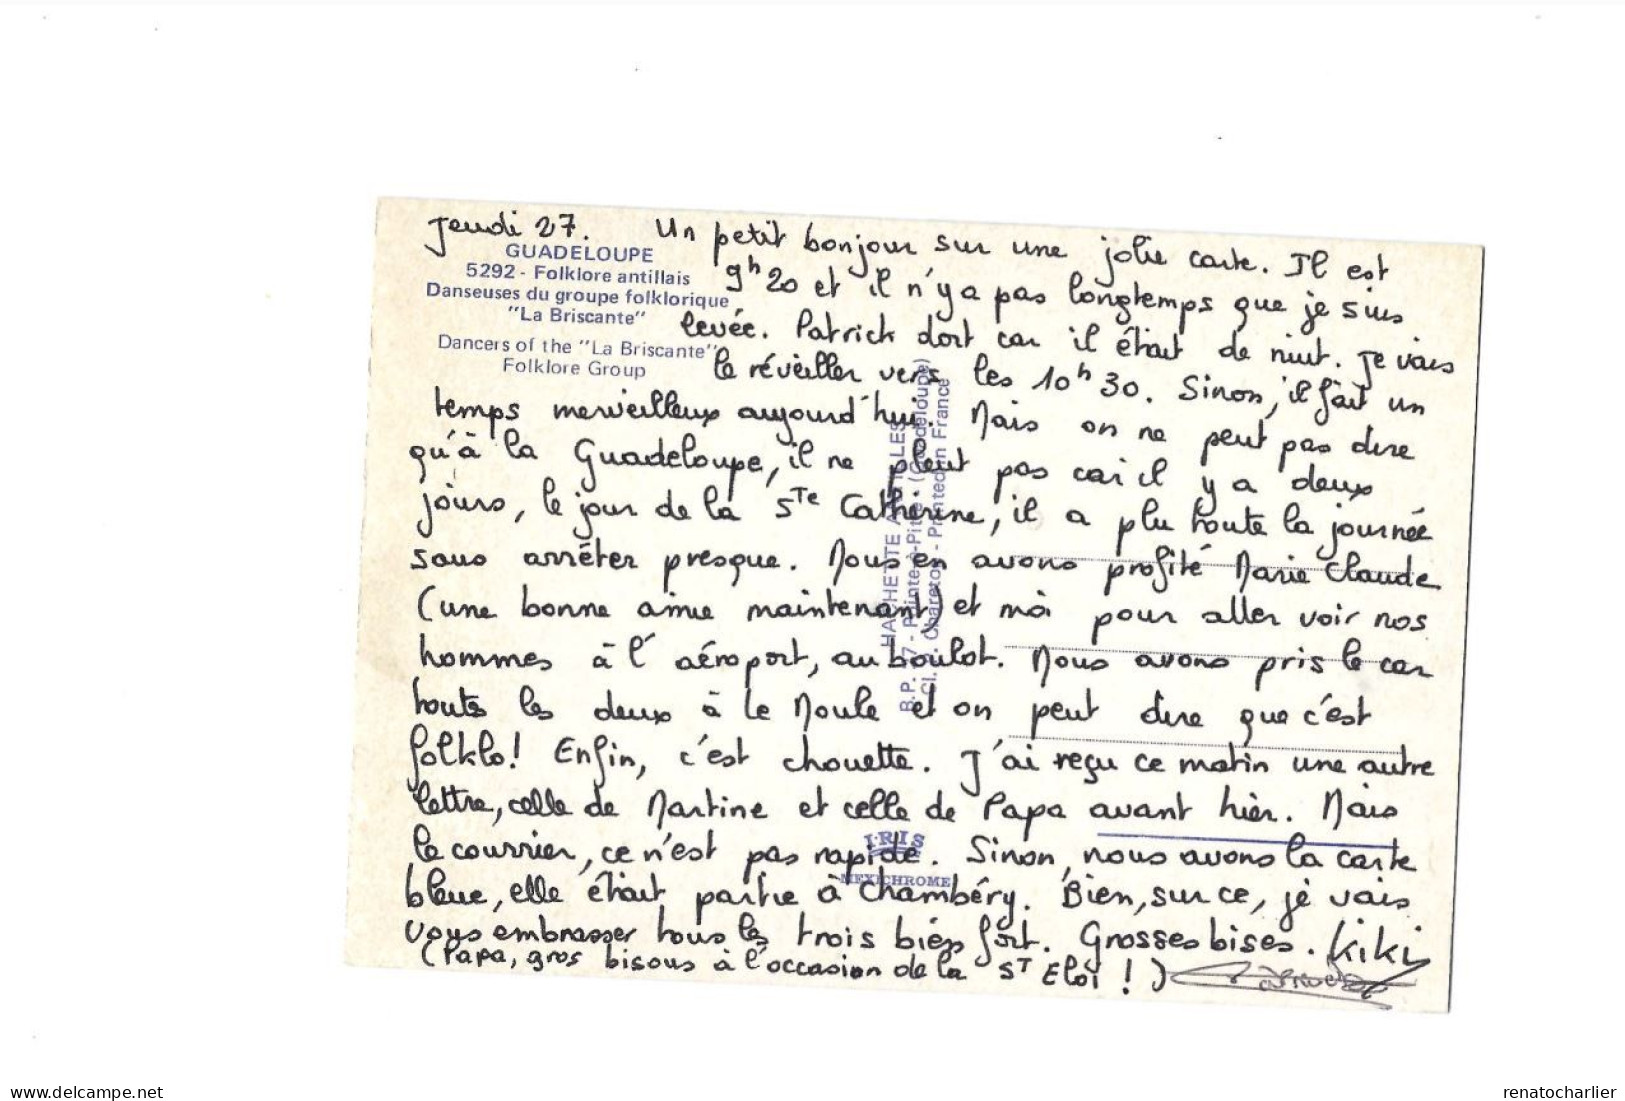 Jeudi 27. Un petit bonjour sur une jolie carte. Il est
GUADELOUPE
5292 - Folklore antillais
Danseuses du groupe folklorique
"La Briscante"
Dancers of the "La Briscante"
Folklore Group
9h20 et il n'y a pas longtemps que je suis
levée. Patrick dort car il était de nuit. Je vais
le réveiller vers les 10h30. Sinon, il fait un
temps merveilleux aujourd'hui. Mais on ne peut pas dire
qu'à la Guadeloupe, il ne pleut pas car il y a deux
jours, le jour de la Ste Catherine, il a plu toute la journée
sans arrêter presque. Nous en avons profité Marie Claude
(une bonne amie maintenant) et moi pour aller voir nos
hommes à l'aéroport, au boulot. Nous avons pris le car
toutes les deux à Le Moule et on peut dire que c'est
folklo! Enfin, c'est chouette. J'ai reçu ce matin une autre
lettre, celle de Martine et celle de Papa avant hier. Mais
le courrier, ce n'est pas rapide. Sinon, nous avons la carte
bleue, elle était partie à Chambéry. Bien, sur ce, je vais
vous embrasser tous les trois bien fort. Grosses bises. Kiki
(Papa, gros bisous à l'occasion de la St Eloi !)
HACHETTE ANTILLES
B.P. - Pointe-à-Pitre - (Guadeloupe)
Cl. Chareton - Printed in France
IRIS
MEXICHROME
delcampe.net
renatocharlier